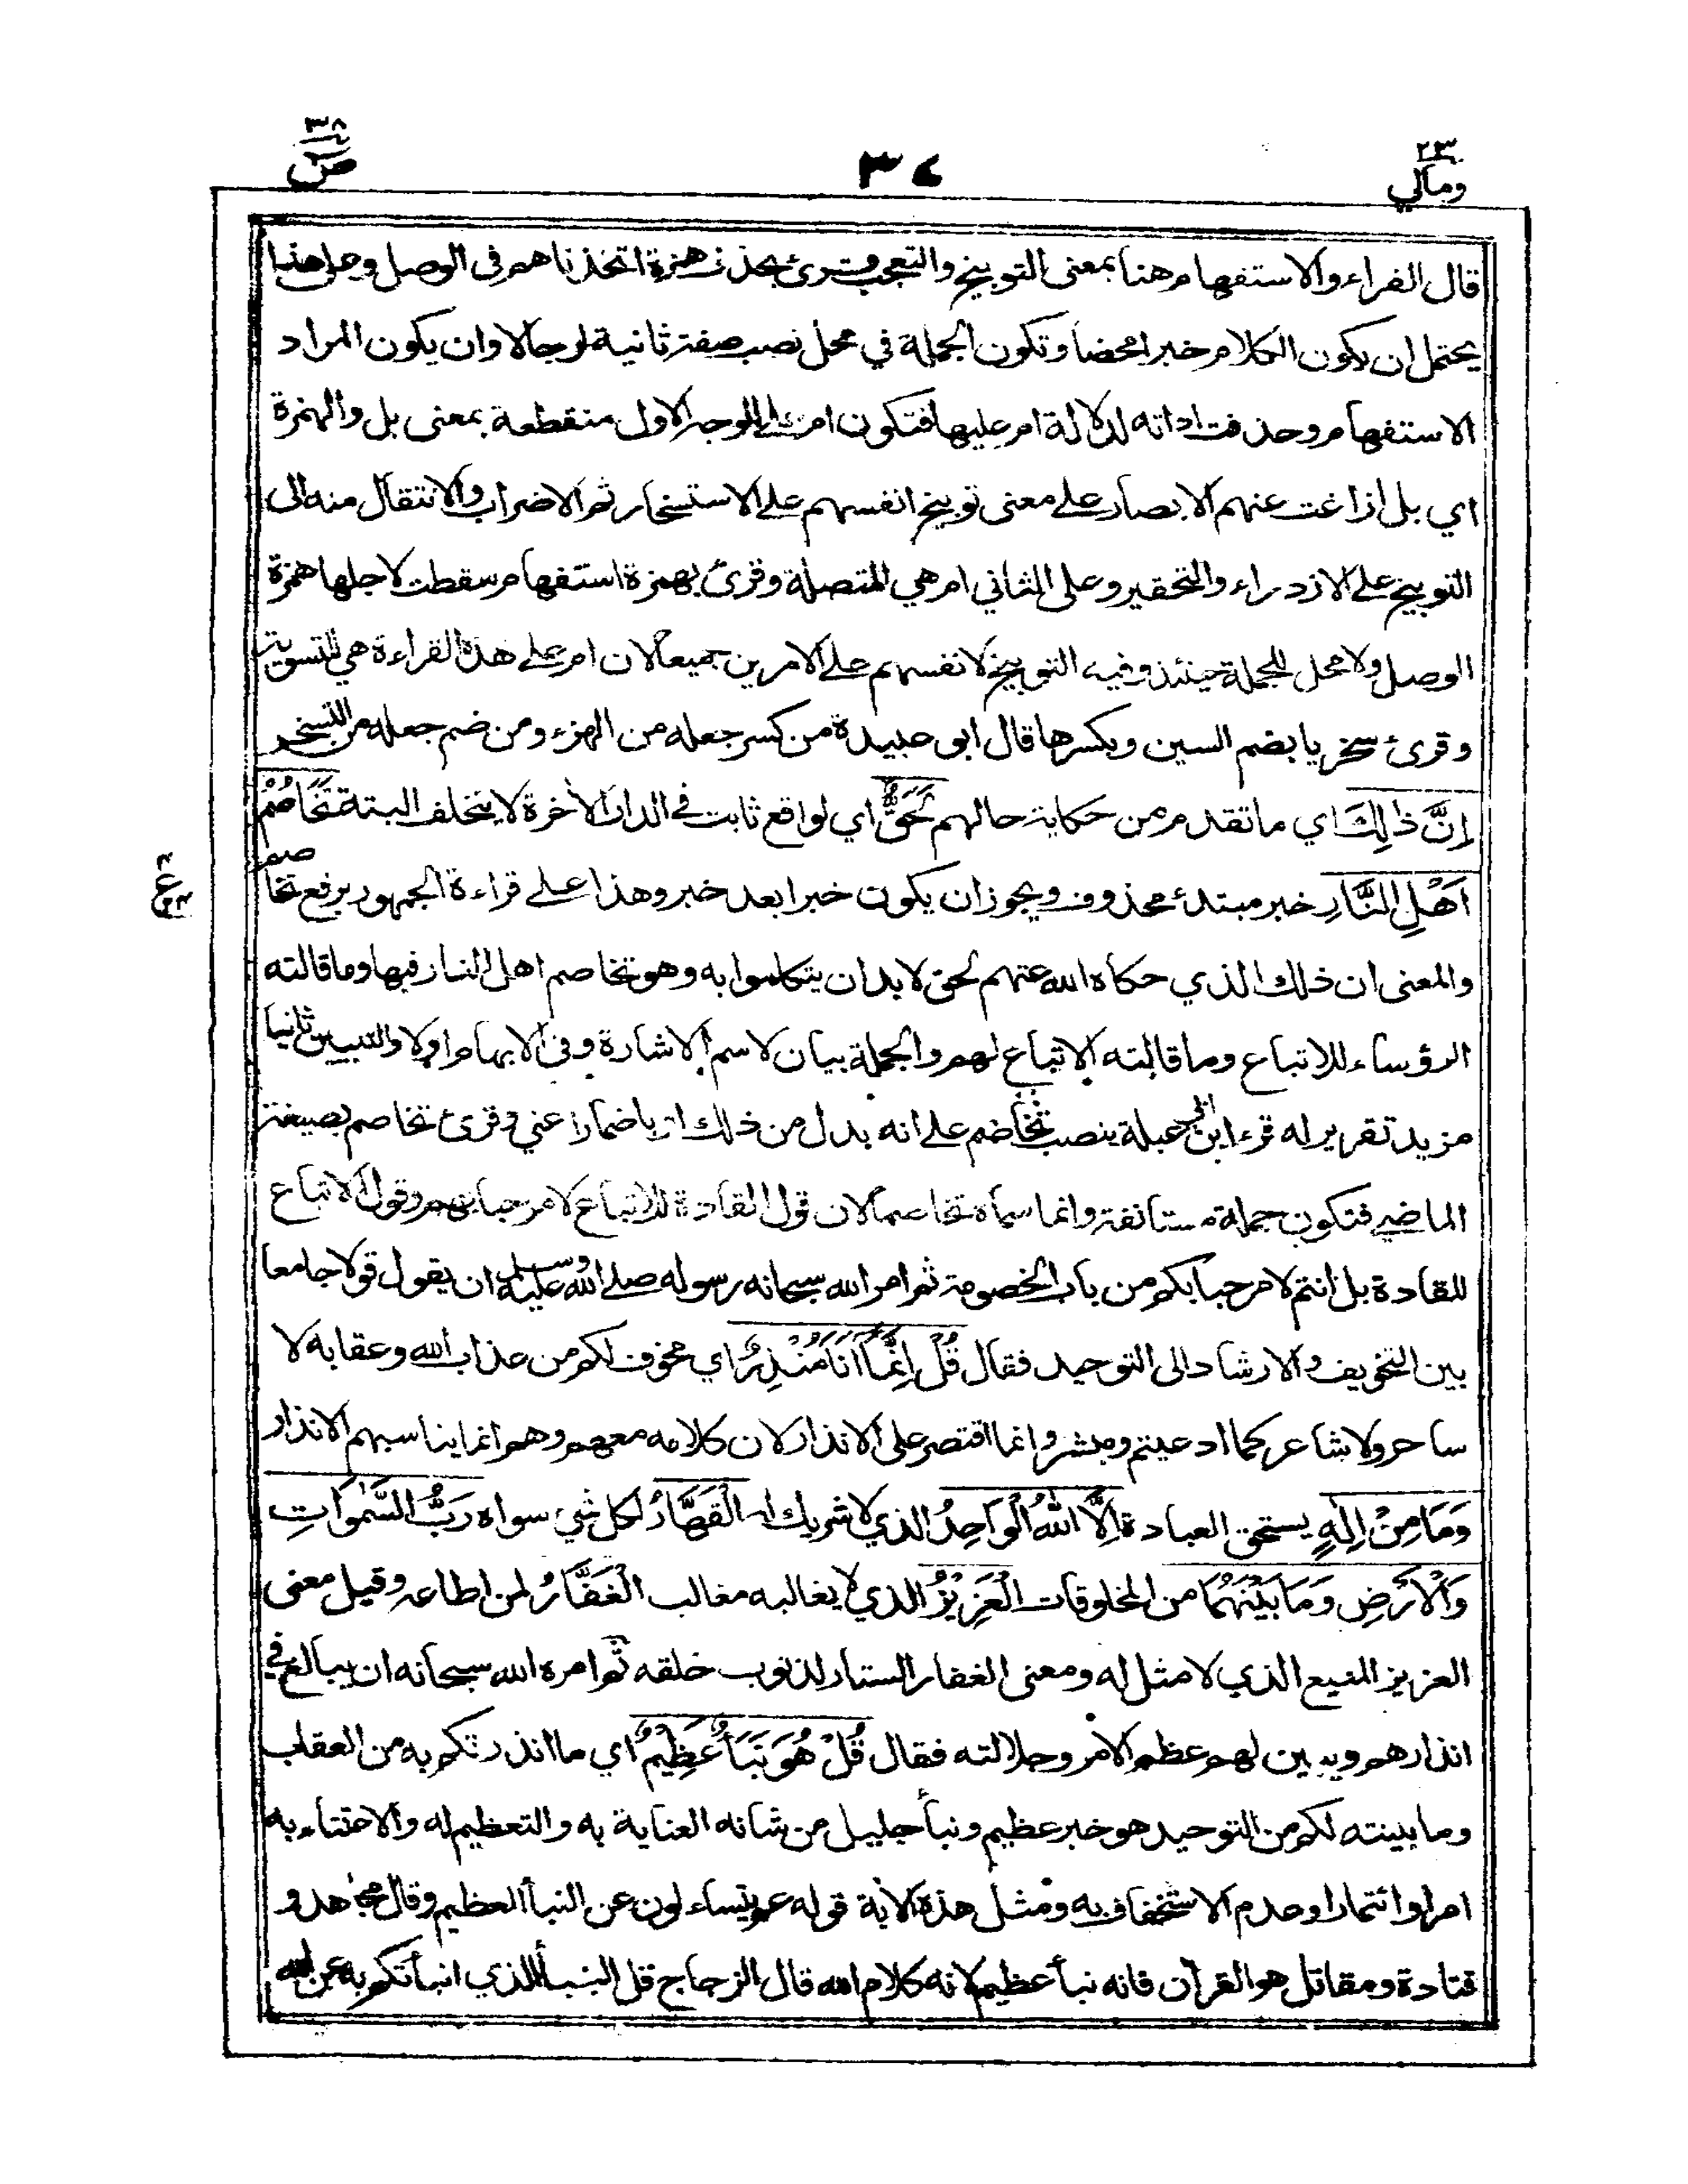 ٢٣
ومالي
٣٤
٣٨
ص
قال الفراء والاستفهام هنا بمعنى التوبيخ والتعجب وقرئ بحذف همزة اتخذناهم في الوصل وعلى هذا
يحتمل ان يكون الكلام خبرا محضا وتكون الجملة في محل نصب صفة ثانية لرجالا وان يكون المراد
الاستفهام وحذفت اداته لدلالة ام عليها فتكون ام على الوجه الاول منقطعة بمعنى بل والهمزة
اي بل ازاغت عنهم الابصار على معنى توبيخ انفسهم على الاستسخار ثم الاضراب والانتقال منه الى
التوبيخ على الازدراء والتحقير وعلى الثاني ام هي المتصلة وقرئ بهمزة استفهام سقطت لاجلها همزة
الوصل ولا محل للجملة حينئذ وفيه التوبيخ لانفسهم على الامرين جميعا لان ام على هذه القراءة هي للتسوية
وقرئ سخريا بضم السين وبكسرها قال ابو عبيدة من كسر جعله من الهزء ومن ضم جعله من التسخير
اِنَّ ذٰلِكَ اي ما تقدم من حكاية حالهم لَحَقٌّ اي لواقع ثابت في الدار الاخرة لا يتخلف البتة تَخَاصُمُ
اَهْلِ النَّارِ خبر مبتدئ محذوف ويجوز ان يكون خبرا بعد خبر وهذا على قراءة الجمهور برفع تخاصم
ع
والمعنى ان ذلك الذي حكاه الله عنهم لحق لا بد ان يتكلموا به وهو تخاصم اهل النار فيها وما قالته
الرؤساء للاتباع وما قالته الاتباع لهم والجملة بيان لاسم الاشارة وفي الابهام اولا والتبيين ثانيا
مزيد تقرير له قرء ابن ابي عبلة بنصب تخاصم على انه بدل من ذلك او باضمار اعني وقرئ تخاصم بصيغة
الماضي فتكون جملة مستانفة وانما سماه تخاصما لان قول القادة للاتباع لا مرحبا بهم وقول الاتباع
للقادة بل انتم لا مرحبا بكم من باب الخصومة ثم امر الله سبحانه رسوله صلى الله عليه وسلم ان يقول قولا جامعا
بين التخويف والارشاد الى التوحيد فقال قُلْ اِنَّمَا اَنَا مُنْذِرٌ اي مخوف لكم من عذاب الله وعقابه لا
ساحر ولا شاعر كما ادعيتم ومبشر وانما اقتصر على الانذار لان كلامه معهم وهم انما يناسبهم الانذار
وَمَا مِنْ اِلٰهٍ يستحق العبادة اِلَّا اللّٰهُ الْوَاحِدُ الذي لا شريك له الْقَهَّارُ لكل شي سواه رَبُّ السَّمٰوَاتِ
وَالْاَرْضِ وَمَا بَيْنَهُمَا من المخلوقات الْعَزِيْزُ الذي لا يغالبه مغالب الْغَفَّارُ لمن اطاعه وقيل معنى
العزيز المنيع الذي لا مثل له ومعنى الغفار الستار لذنوب خلقه ثم امره الله سبحانه ان يبالغ في
انذارهم ويبين لهم عظم الامر وجلالته فقال قُلْ هُوَ نَبَأٌ عَظِيْمٌ اي ما انذرتكم به من العقاب
وما بينته لكم من التوحيد هو خبر عظيم ونبأ جليل من شانه العناية به والتعظيم له والاعتناء به
امرا وائتمارا وعدم الاستخفاف به ومثل هذه الاية قوله عم يتساءلون عن النبأ العظيم وقال مجاهد و
قتادة ومقاتل هو القرآن فانه نبأ عظيم لانه كلام الله قال الزجاج قل النبأ الذي انبأتكم به عن الله